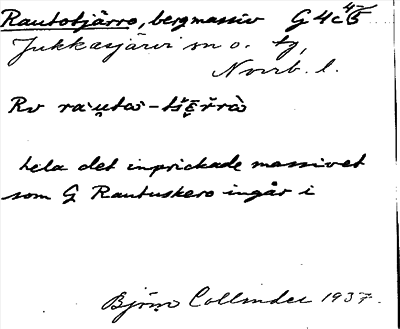 Rautotjärro, bergmassiv G4c45
Jukkasjärvi sn o. tg,
Norrb. l.
Rv
hela det inprickade massivet
som G Rautuskero ingår i
Björn Collinder 1937.